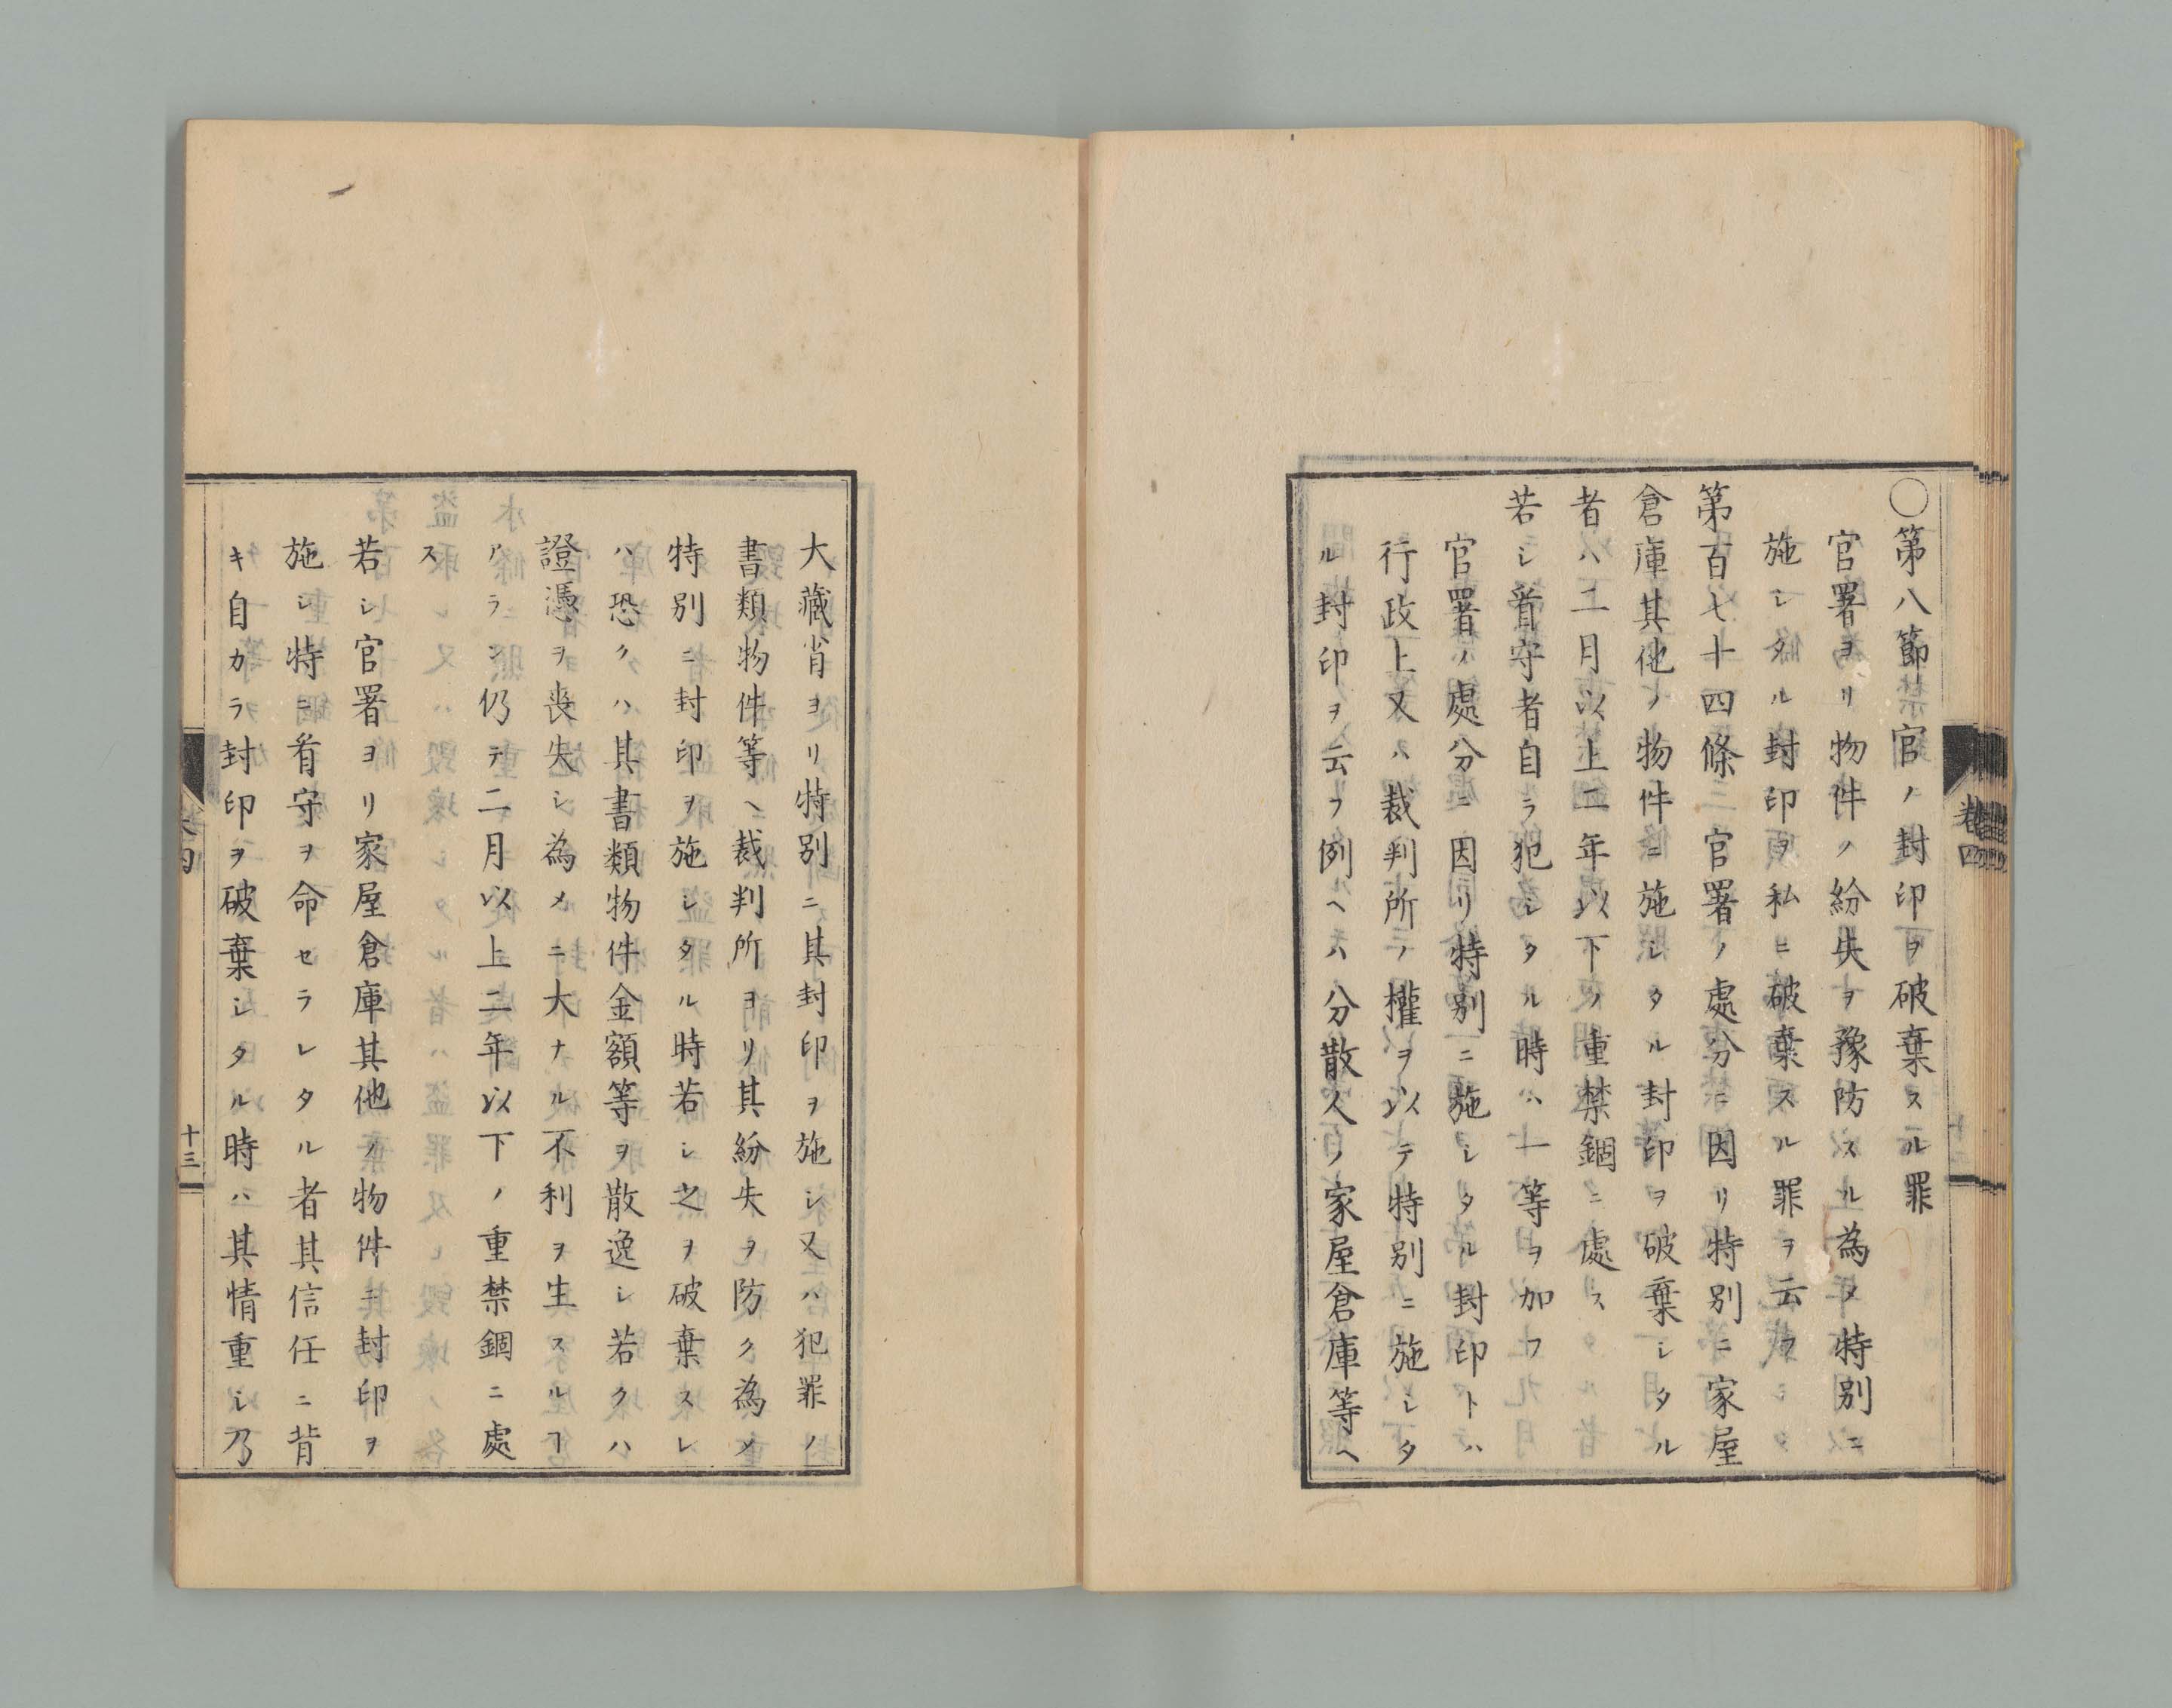 〇第八節 官ノ封印ヲ破棄スル罪
官署ヨリ物件ノ紛失ヲ豫防スル為メ特別ニ
施シタル封印ヲ私ニ破棄スル罪ヲ云フ
第百七十四條 官署ノ處分ニ因リ特別ニ家屋
倉庫其他ノ物件ニ施シタル封印ヲ破棄シタル
者ハ二月以上二年以下ノ重禁錮ニ處ス
若シ看守者自ラ犯シタル時ハ一等ヲ加フ
官署ノ處分ニ因リ特別ニ施シタル封印トハ
行政上又ハ裁判所ノ權ヲ以テ特別ニ施シタ
ル封印ヲ云フ例ヘハ分散人ノ家屋倉庫等ヘ
卷四
大藏省ヨリ特別ニ其封印ヲ施シ又ハ犯罪ノ
書類物件等ヘ裁判所ヨリ其紛失ヲ防ク為メ
特別ニ封印ヲ施シタル時若シ之ヲ破棄スレ
ハ恐クハ其書類物件金額等ヲ散逸シ若クハ
證憑ヲ喪失シ為メニ大ナル不利ヲ生スルヿ
アラン仍テ二月以上二年以下ノ重禁錮ニ處
ス
若シ官署ヨリ家屋倉庫其他ノ物件ニ封印ヲ
施シ特ニ看守ヲ命セラレタル者其信任ニ背
キ自カラ封印ヲ破棄シタル時ハ其情重シ乃
十三